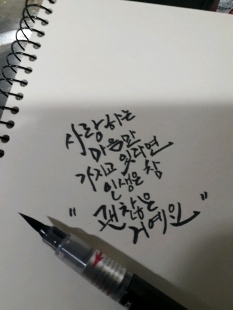 사랑하는
마음만
가지고 있다면
인생은 참
" 괜찮은 "
거예요